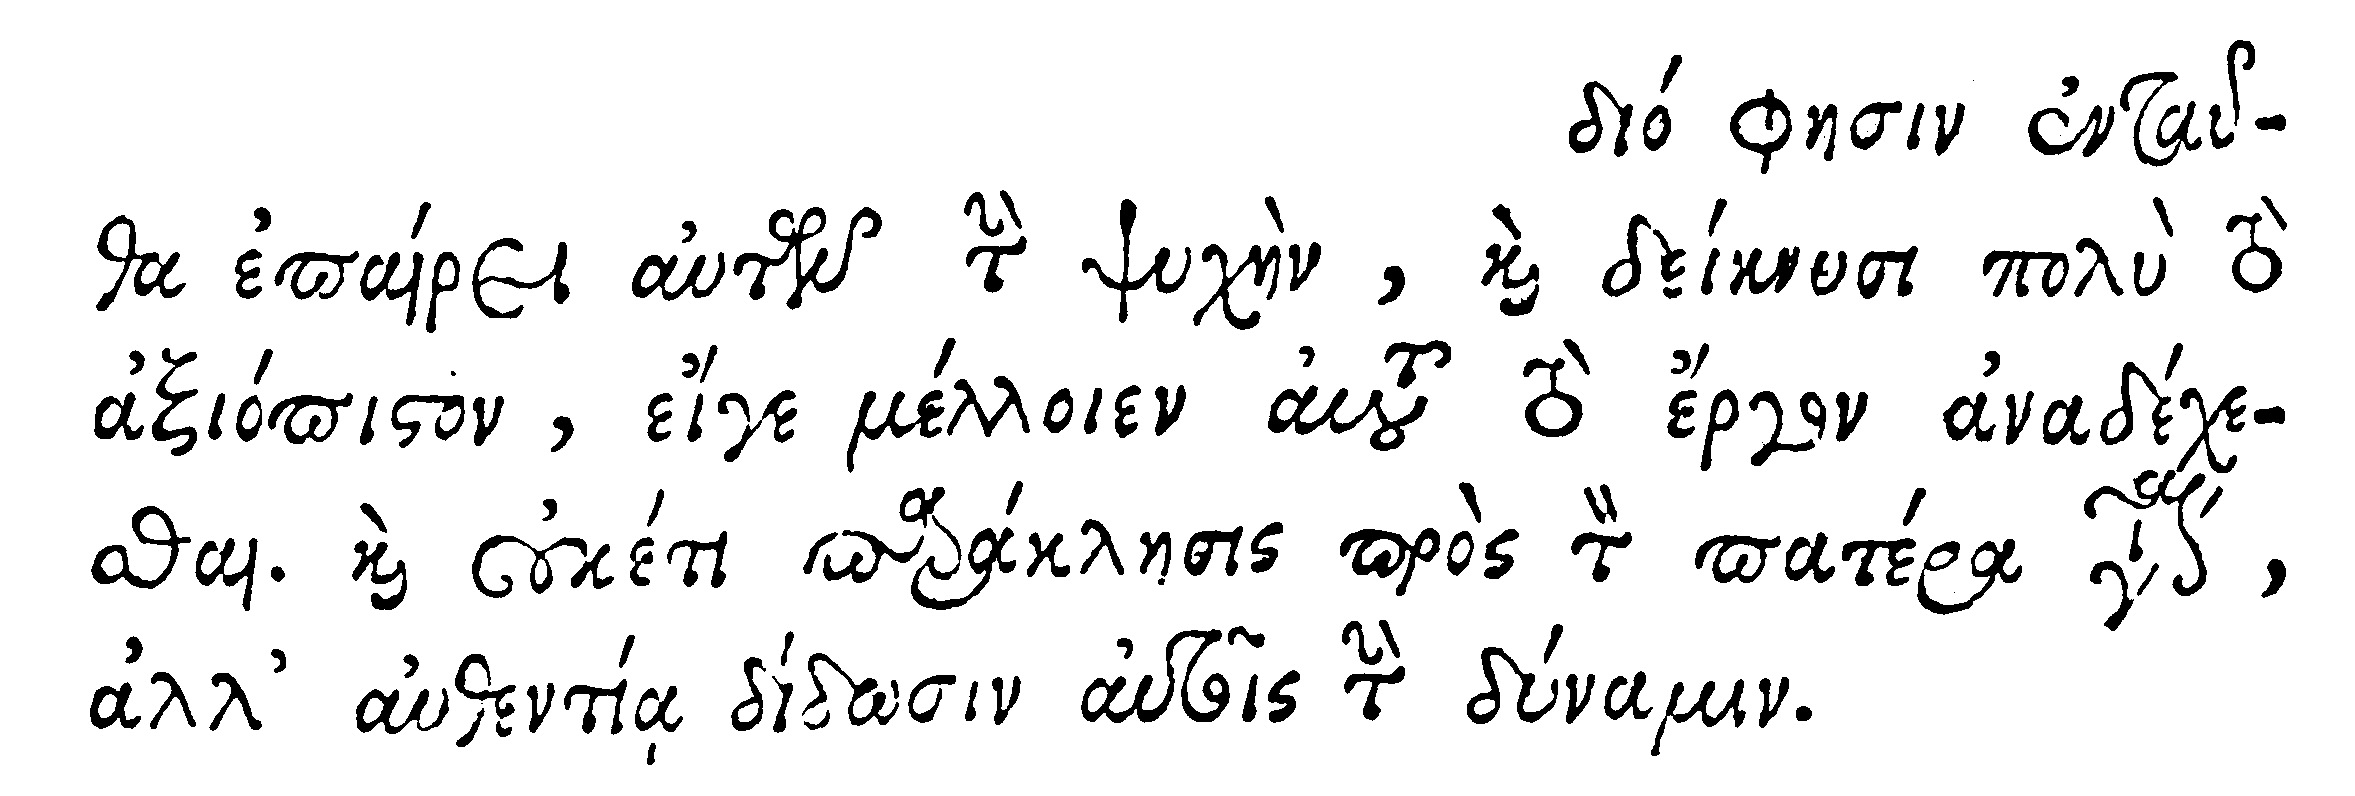 διό φησιν ἐνταῦ-
θα ἐπαίρει αὐτῶν τὴν ψυχὴν, καὶ δείκνυσι πολὺ τὸ
ἀξιόπιστον, εἴγε μέλλοιεν αὐτοῦ τὸ ἔργον ἀναδέχε-
σθαι. καὶ οὐκέτι παράκλησις πρὸς τὸν πατέρα γίνεται,
ἀλλ' αὐθεντίᾳ δίδωσιν αὐτοῖς τὴν δύναμιν.